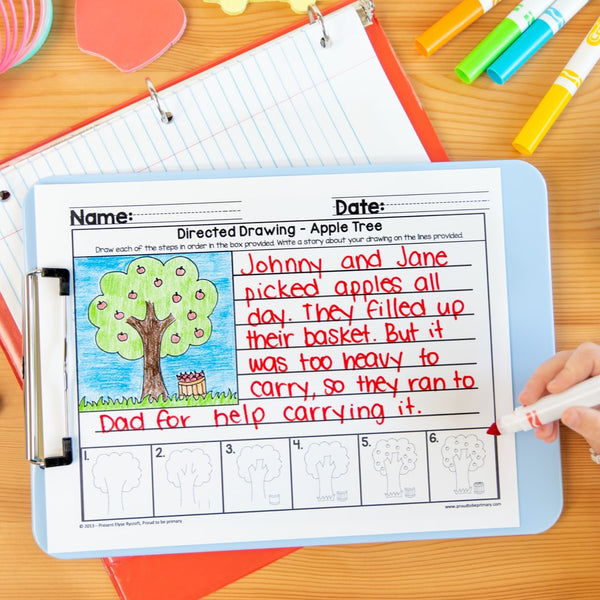 Name: Date:
Directed Drawing - Apple Tree
Draw each of the steps in order in the box provided. Write a story about your drawing on the lines provided.
Johnny and Jane
picked apples all
day. They filled up
their basket. But it
was too heavy to
carry, so they ran to
Dad for help carrying it.
1. 2. 3. 4. 5. 6.
www.proudtobeprimary.com